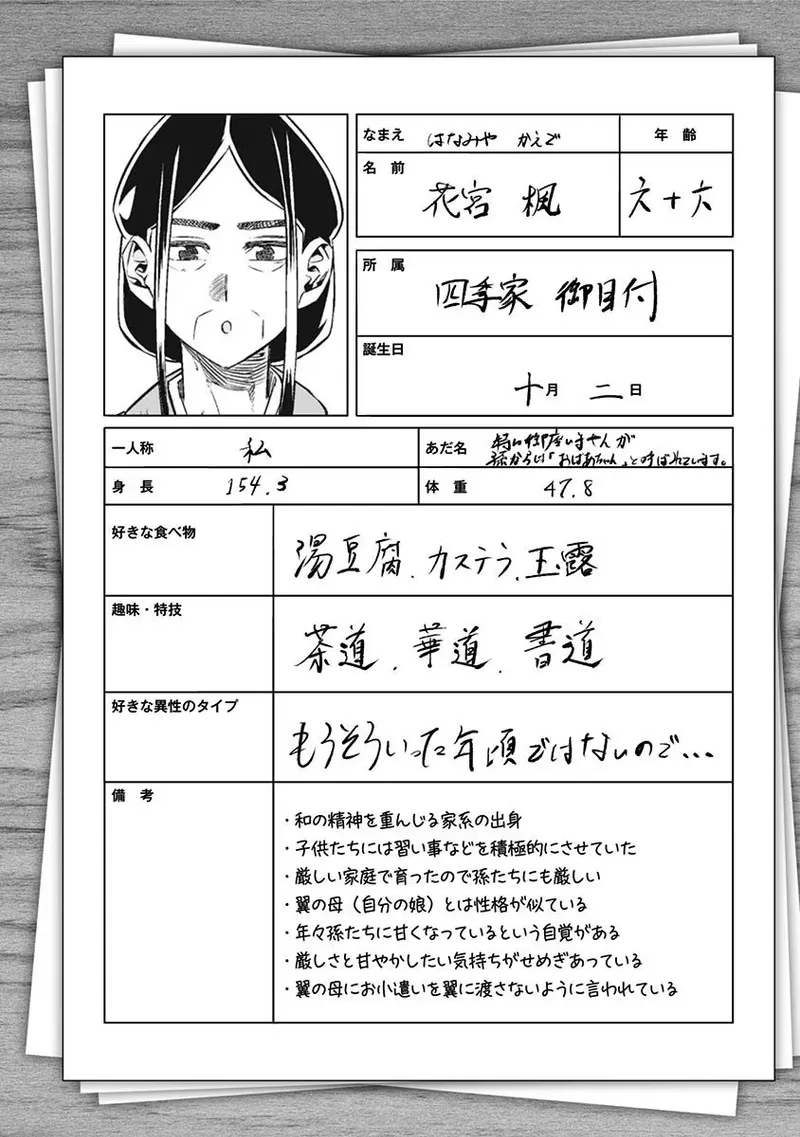 なまえ はなみや かえで
年 齢
名 前
花宮 楓
六十六
所 属
四季家 御目付
誕生日
十月 二日
一人称 私
あだ名 特に御座いませんが
孫からは「おばあちゃん」と呼ばれています。
身 長 154.3
体 重 47.8
好きな食べ物
湯豆腐、カステラ、玉露
趣味・特技
茶道、華道、書道
好きな異性のタイプ
もうそういった年頃ではないので…
備 考
・和の精神を重んじる家系の出身
・子供たちには習い事などを積極的にさせていた
・厳しい家庭で育ったので孫たちにも厳しい
・翼の母（自分の娘）とは性格が似ている
・年々孫たちに甘くなっているという自覚がある
・厳しさと甘やかしたい気持ちがせめぎあっている
・翼の母にお小遣いを翼に渡さないように言われている